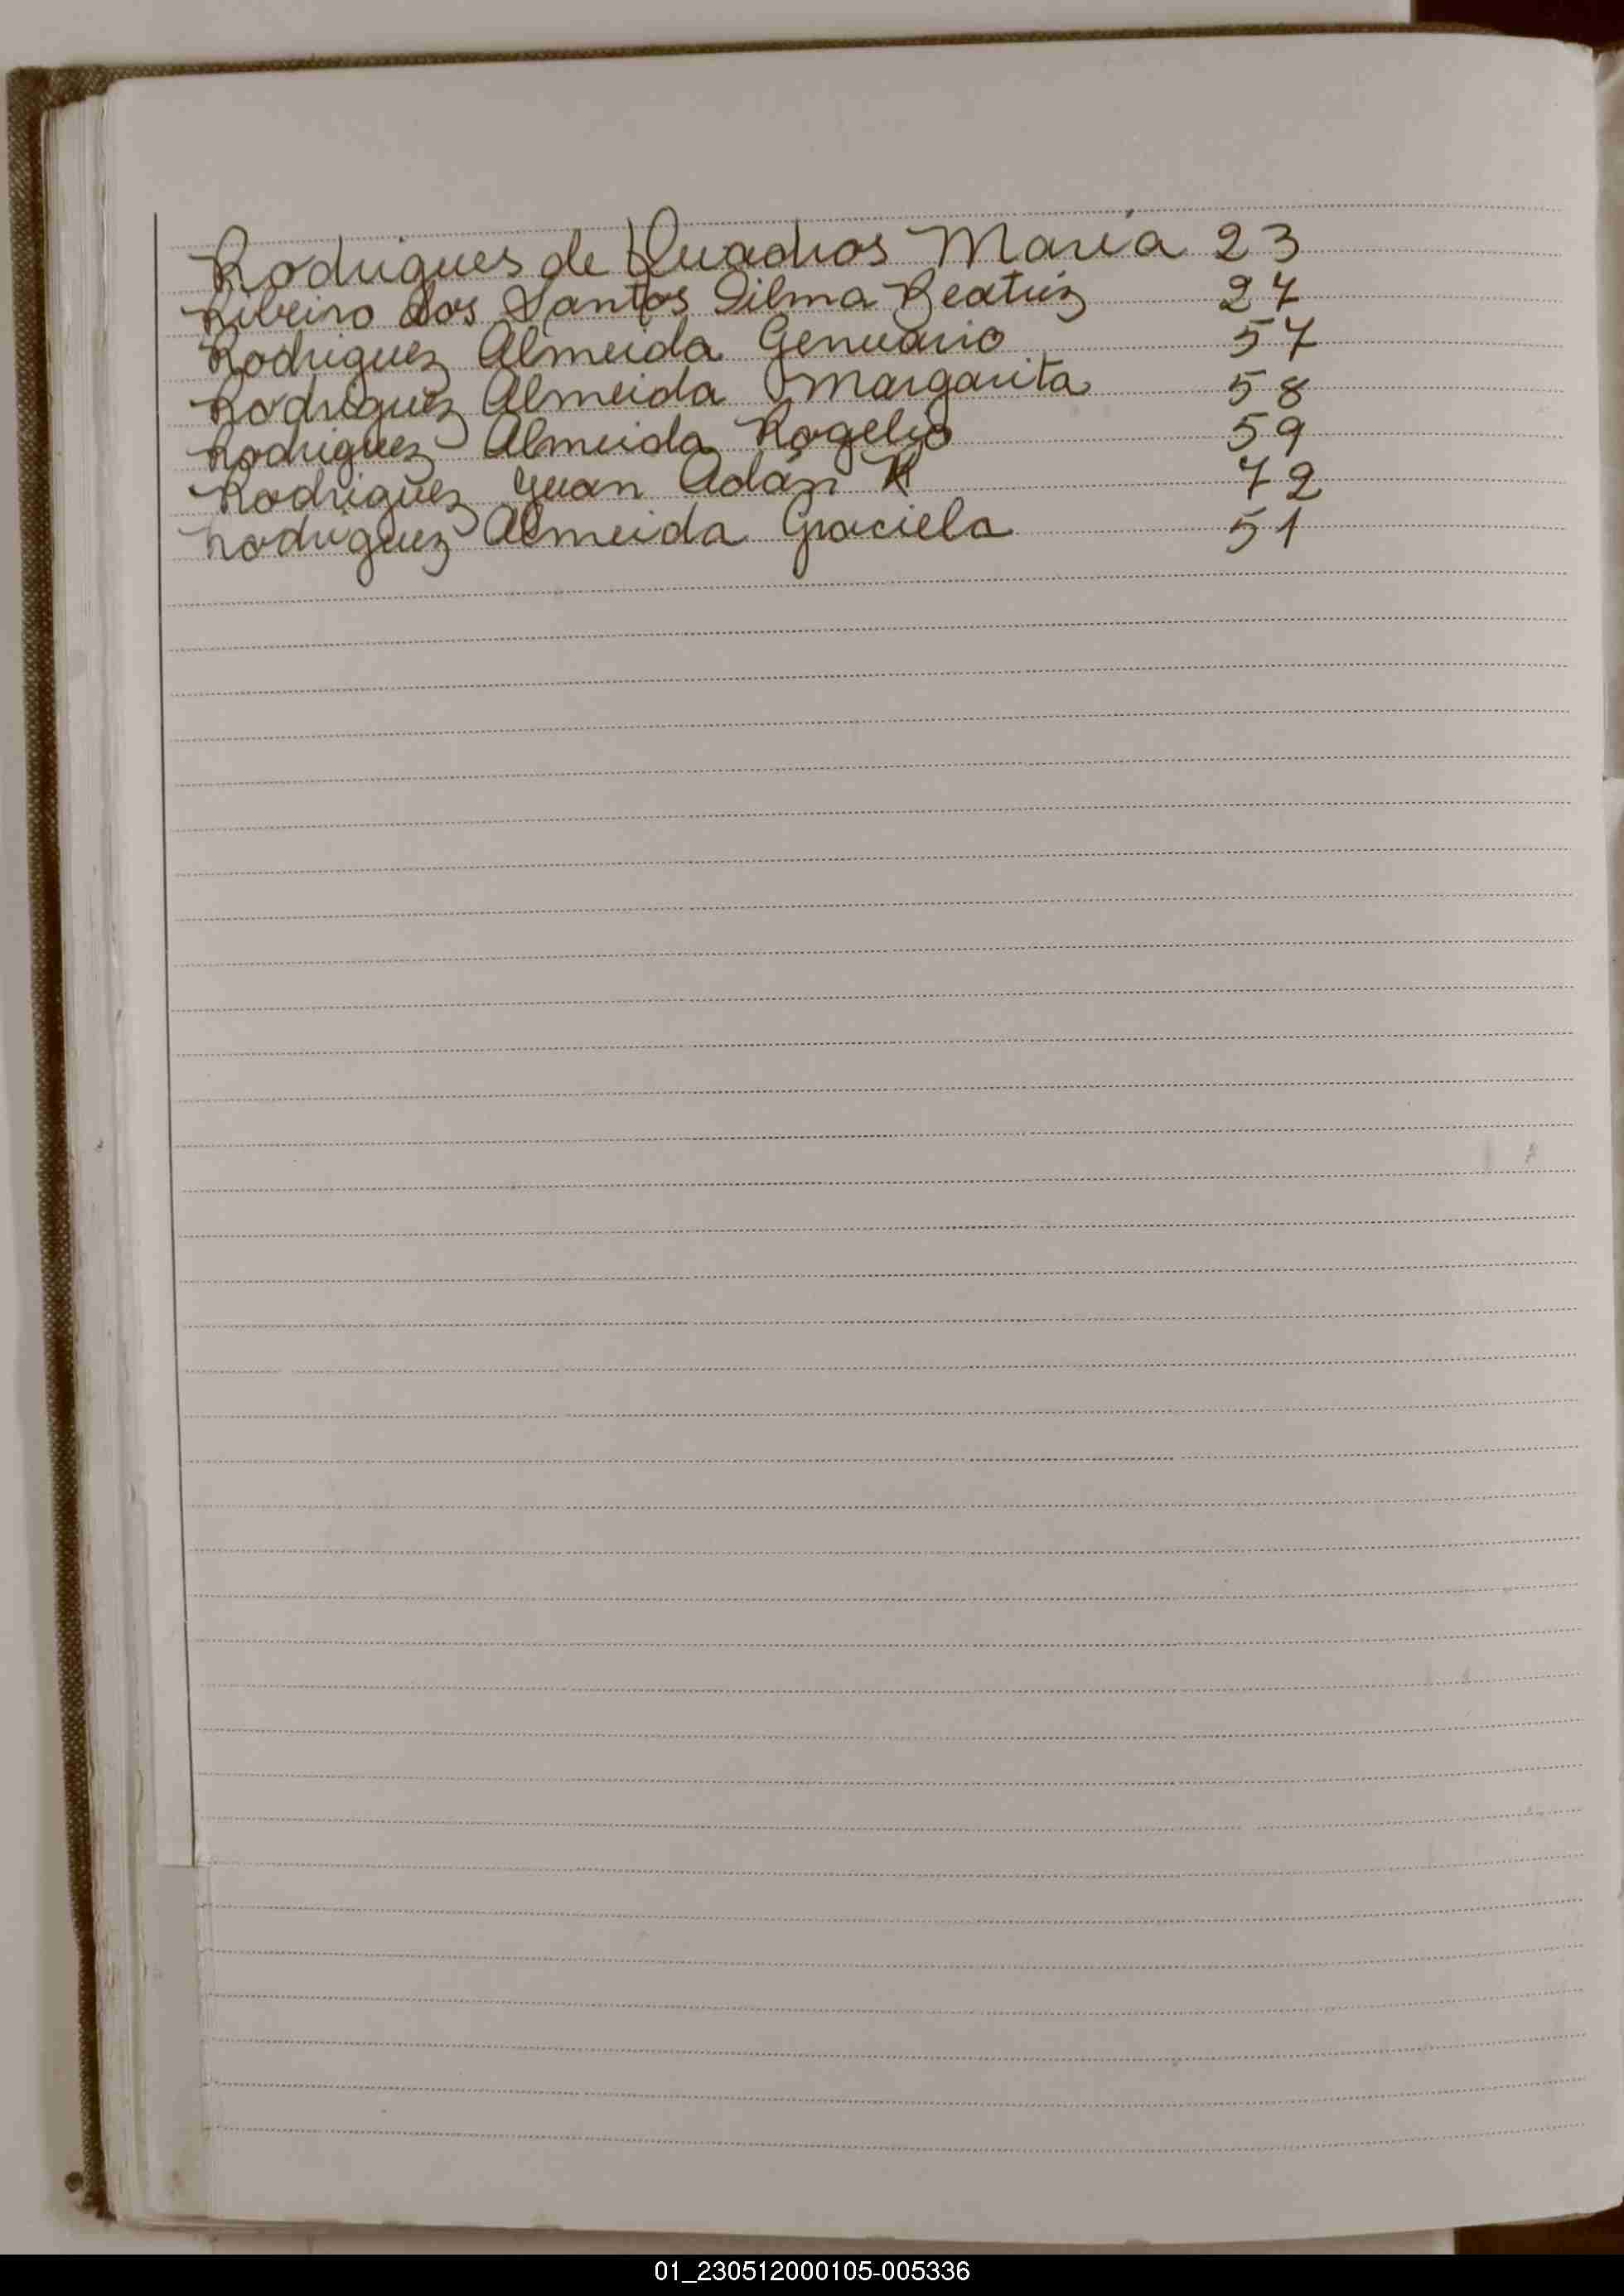 Rodrigues de Quadros María 23
Ribeiro dos Santos Silma Beatriz 27
Rodriguez Almeida Genuario 57
Rodriguez Almeida Margarita 58
Rodriguez Almeida Rogelio 59
Rodriguez Juan Adán R 72
Rodriguez Almeida Graciela 51
01_230512000105-005336